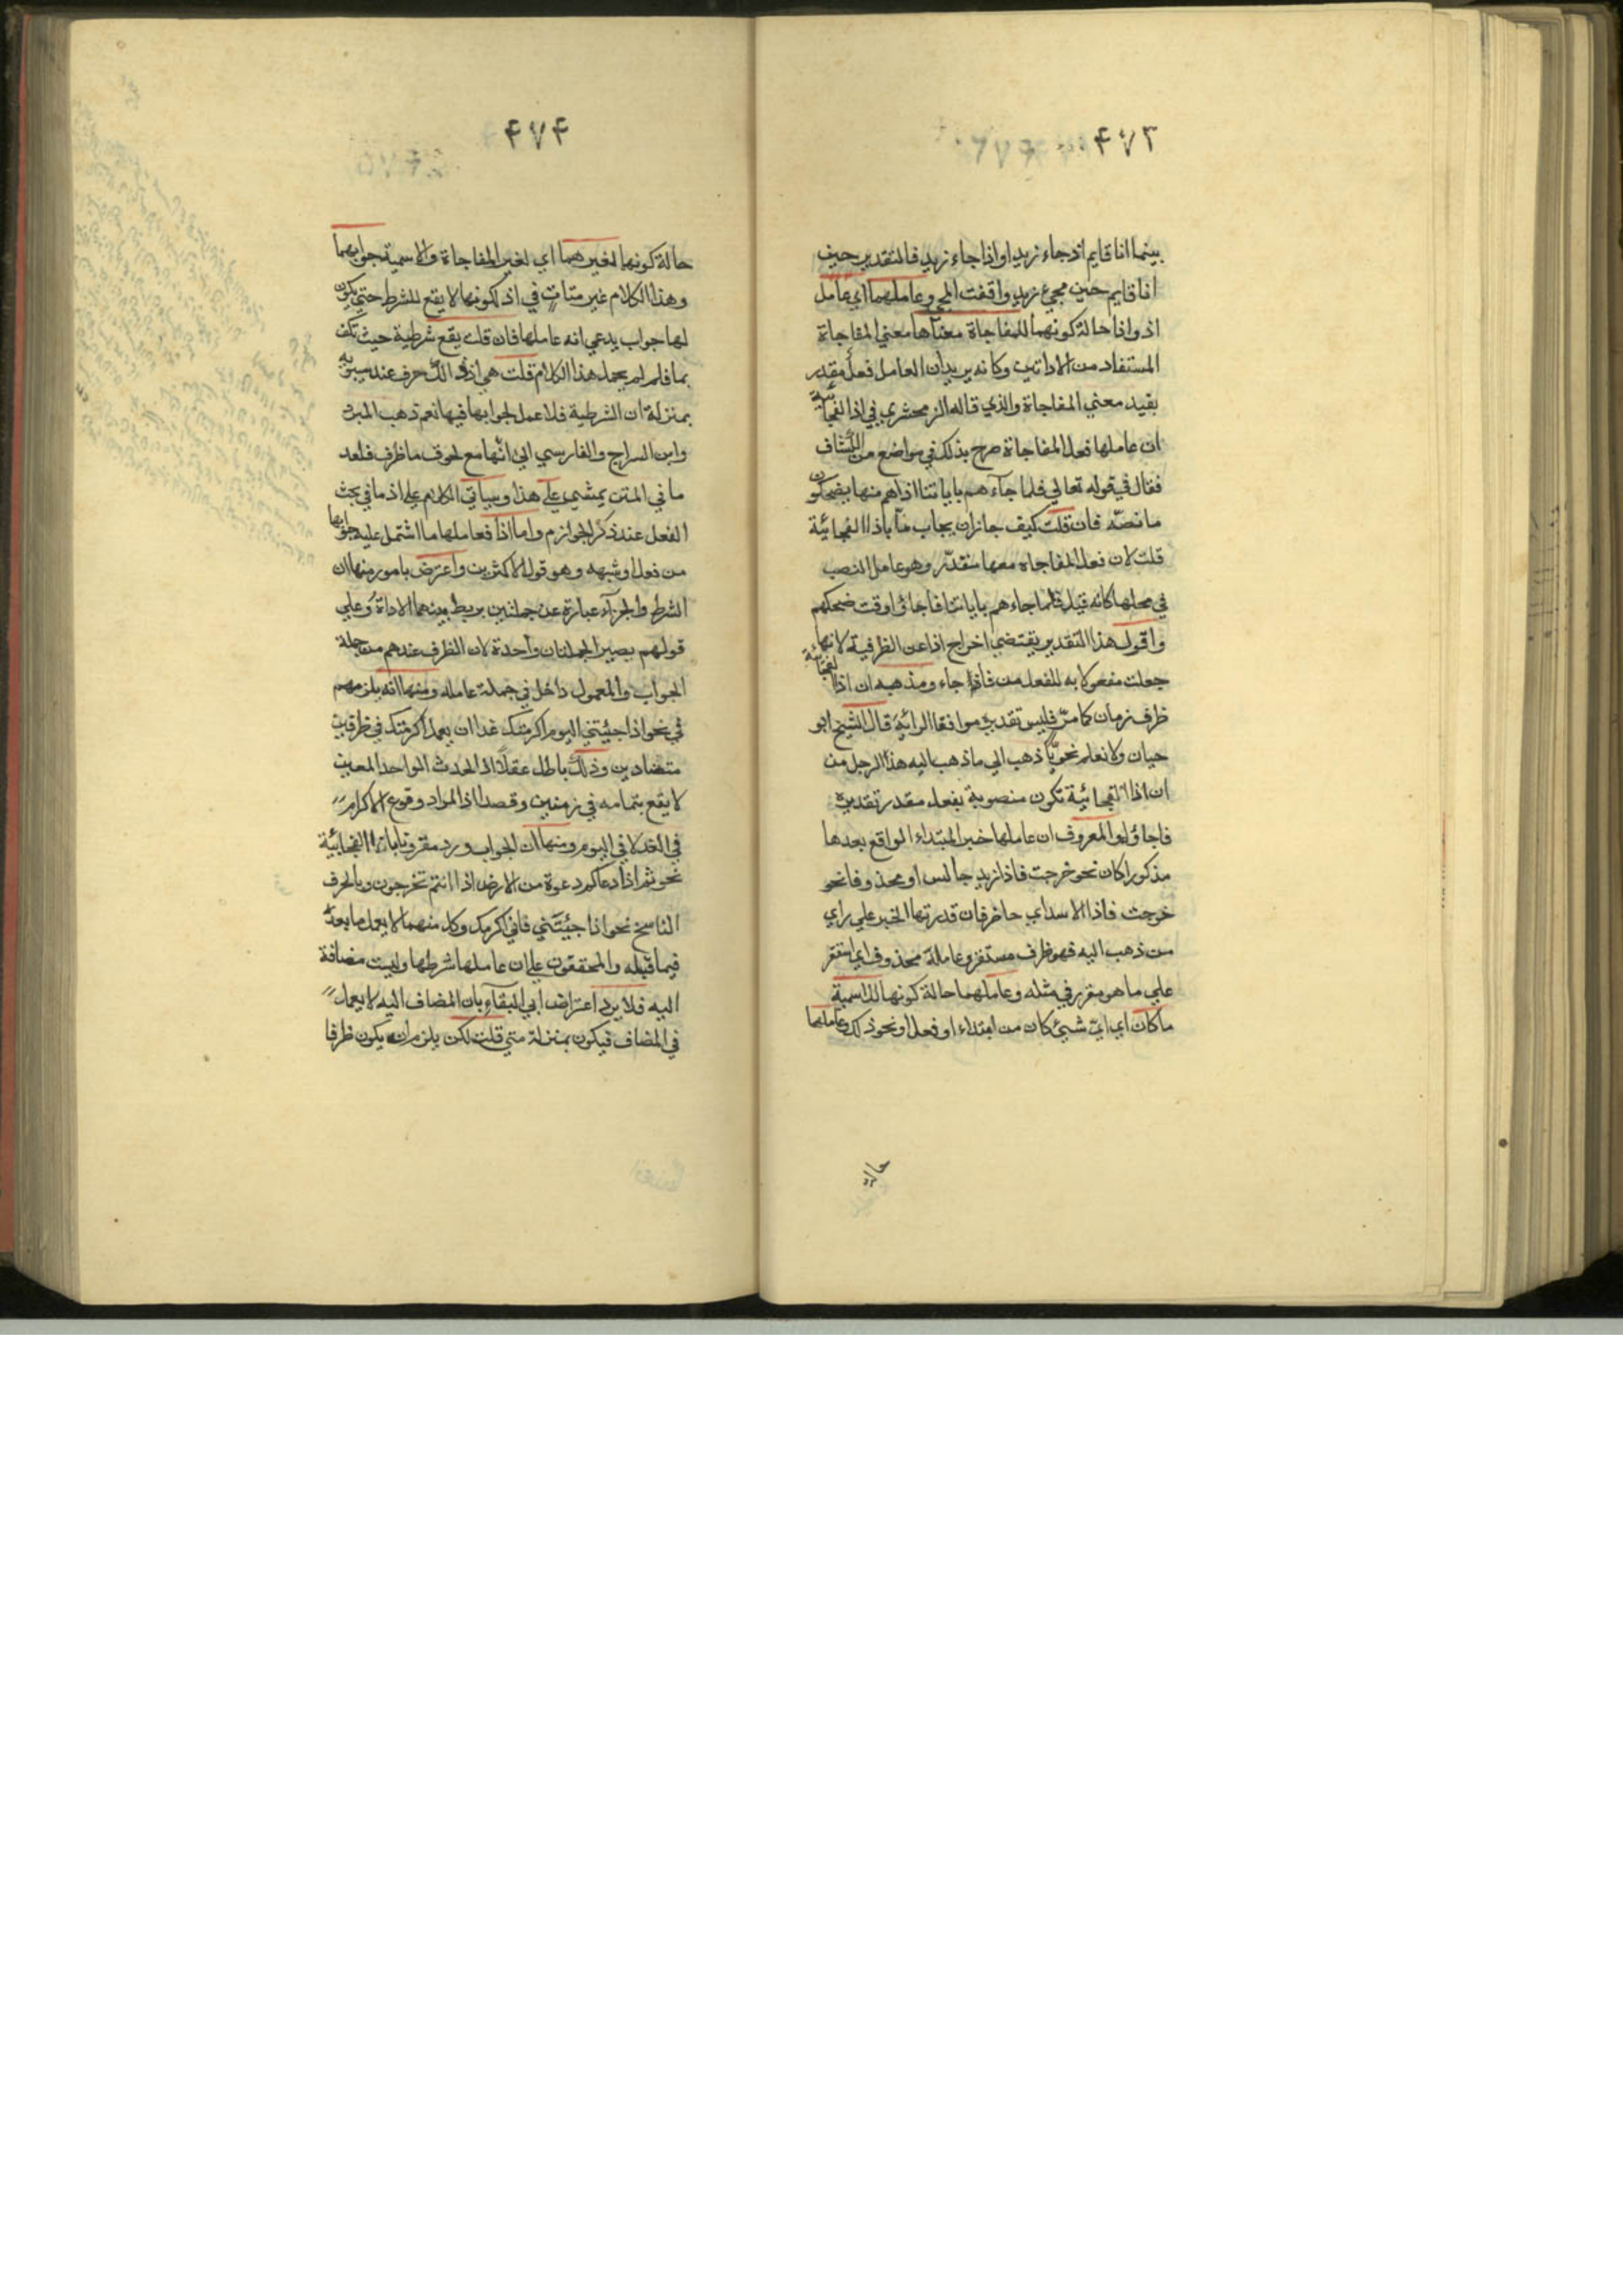 ۴۷۳
بينما انا قايم اذ جاء زيد او اذا جاء زيد فالتقدير حين
انا قايم حين مجيء زيد وافقت المجي وعاملهما اي عامل
اذ واذا حالة كونهما للمفاجاة معناها معني المفاجاة
المستفاد من الاداتين وكانه يريد ان العامل فعل مقدر
يفيد معني المفاجاة والذي قاله الزمخشري في اذا الفجائية
ان عاملها فعل المفاجاة صرح بذلك في مواضع من الكشاف
فقال في قوله تعالي فلما جاءهم باياتنا اذا هم منها يضحكون
ما نصّه فان قلت كيف جاز ان يجاب لمّا باذا الفجائية
قلت لان فعل المفاجاه معها مقدّر وهو عامل النصب
في محلها كانه قيل فلما جاءهم باياتنا فاجاؤا وقت ضحكهم
واقول هذا التقدير يقتضي اخراج اذا عن الظرفية لانها
جعلت مفعولا به للفعل من فاجا ومذهبه ان اذا الفجائية
ظرف زمان كما مرّ فليس تقديره موافقا لرائيه قال الشيخ ابو
حيان ولا نعلم نحويّا ذهب الي ما ذهب اليه هذا الرجل من
ان اذا الفجائية تكون منصوبة بفعل مقدر تقديره
فاجاؤا والمعروف ان عاملها خبر المبتداء الواقع بعدها
مذكورا كان نحو خرجت فاذا زيد جالس او محذوفا نحو
خرجت فاذا الاسد اي حاضر فان قدرتها الخبر علي راي
من ذهب اليه فهو ظرف مستقر وعامله محذوف اي استقر
علي ما هو مقرر في مثله وعاملهما حالة كونها للاسمية
ما كان اي ايّ شيئ كان من ابتداء او فعل او نحو ذلك وعاملهما
حالة
۴۷۴
حالة كونها لغيرهما اي لغير المفاجاة والاسمية جوابهما
وهذا الكلام غير متات في اذ لكونها لا يقع للشرط حتي يكون
لها جواب يدعي انه عاملها فان قلت يقع شرطية حيث تكف
بما فلم لم يحمل هذا الكلام قلت هي اذ ذاك حرف عند سيبويه
بمنزلة ان الشرطية فلا عمل لجوابها فيها نعم ذهب المبرد
وابن السراج والفارسي الي انّها مع لحوق ما ظرف فلعل
ما في المتن يمشي علي هذا وسياتي الكلام علي اذ ما في بحث
الفعل عند ذكر الجوازم واما اذا فعاملها ما اشتمل عليه جوابها
من فعل او شبهه وهو قول الاكثرين واعترض بامور منها ان
الشرط والجزآء عبارة عن جملتين يربط بينهما الاداة وعلي
قولهم يصير الجملتان واحدة لان الظرف عندهم من جملة
الجواب والمعمول داخل في جملة عامله ومنها انه يلزمهم
في نحو اذا جيئتني اليوم اكرمتك غدا ان يعمل اكرمتك في ظرفين
متضادين وذلك باطل عقلا اذ الحدث الواحد المعين
لا يقع بتمامه في زمنين وقصدا اذ المراد وقوع الاكرام
في الغد لا في اليوم ومنها ان الجواب ورد مقرونا باذا الفجائية
نحو ثم اذا دعاكم دعوة من الارض اذا انتم تخرجون وبالحرف
الناسخ نحو اذا جيئتني فاني اكرمك وكل منهما لا يعمل ما بعده
فيما قبله والمحققون علي ان عاملها شرطها وليست مضافة
اليه فلا يرد اعتراض ابي البقآء بان المضاف اليه لا يعمل
في المضاف فيكون بمنزلة متي قلت لكن يلزم ان يكون ظرفا